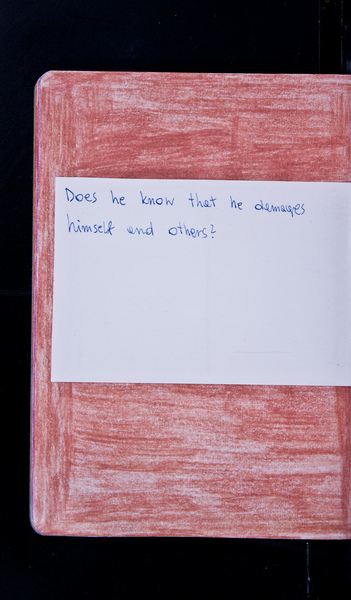 Does he know that he damages
himself and others?